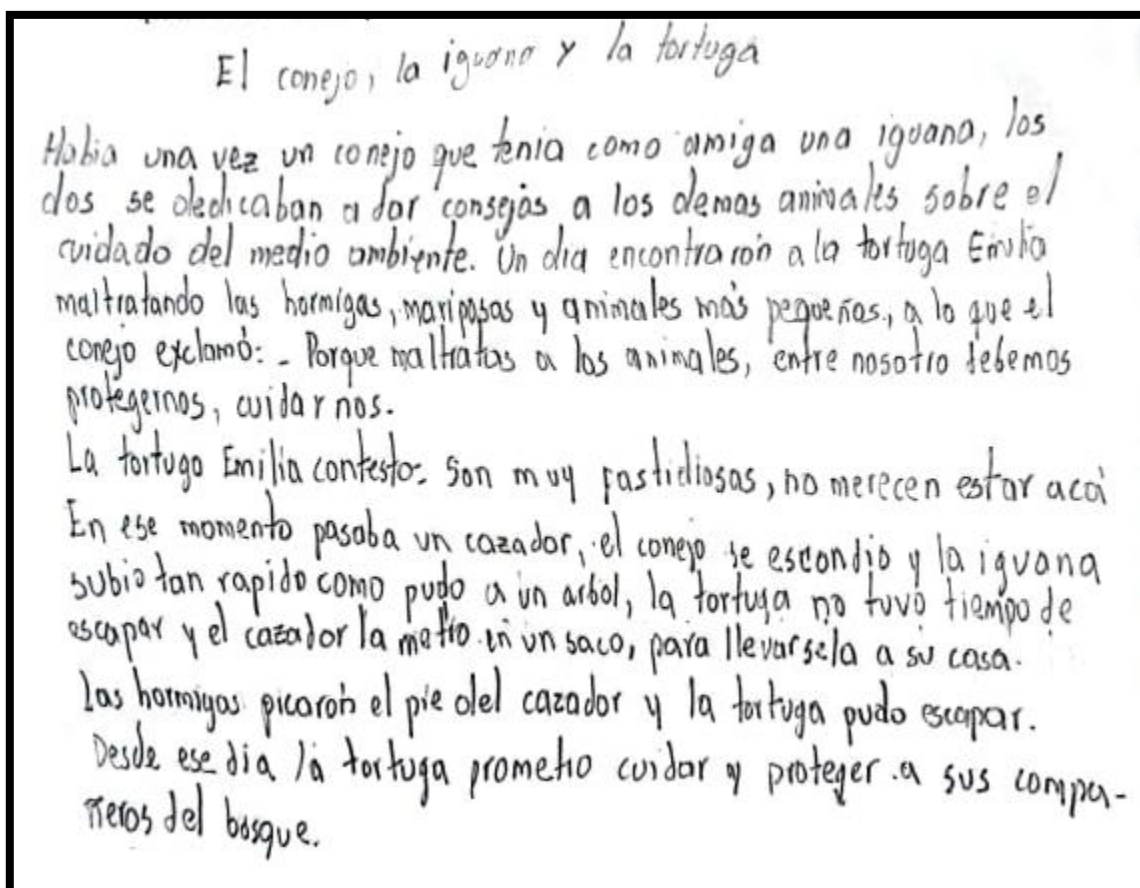 El conejo, la iguana y la tortuga
Habia una vez un conejo que tenia como amiga una iguana, los
dos se dedicaban a dar consejos a los demas animales sobre el
cuidado del medio ambiente. Un dia encontraron a la tortuga Emilia
maltratando las hormigas, mariposas y animales más pequeños, a lo que el
conejo exclamó: - Porque maltratas a los animales, entre nosotro debemos
protegernos, cuidarnos.
La tortuga Emilia contesto: Son muy fastidiosas, no merecen estar acá
En ese momento pasaba un cazador, el conejo se escondio y la iguana
subio tan rapido como pudo a un arbol, la tortuga no tuvo tiempo de
escapar y el cazador la metio en un saco, para llevarsela a su casa.
Las hormigas picarón el pie del cazador y la tortuga pudo escapar.
Desde ese dia la tortuga prometio cuidar y proteger a sus compa-
ñeros del bosque.